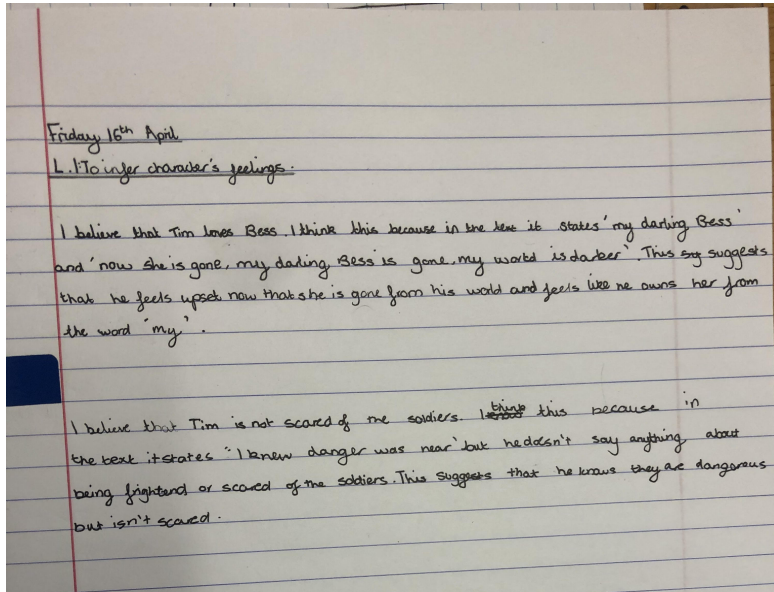 Friday 16th April
L.I:To infer character's feelings.
I believe that Tim loves Bess. I think this because in the text it states 'my darling Bess'
and 'now she is gone, my darling Bess is gone, my world is darker'. This sug suggests
that he feels upset now that she is gone from his world and feels like he owns her from
the word 'my'.
I believe that Tim is not scared of the soldiers. I think this because in
the text it states 'I knew danger was near' but he doesn't say anything about
being frightend or scared of the soldiers. This suggests that he knows they are dangerous
but isn't scared.